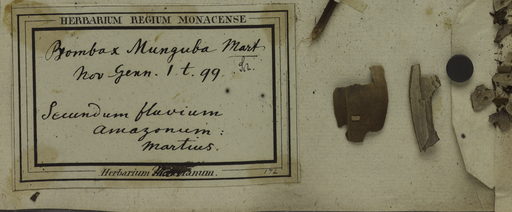 HERBARIUM REGIUM MONACENSE
Bombax Munguba Mart
Nov Genn. 1 t. 99.
Secundum fluvium
amazonum:
Martius.
Herbarium Martianum.